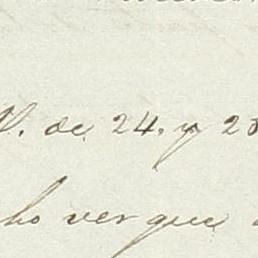 V. de 24. y 25
ho ver que